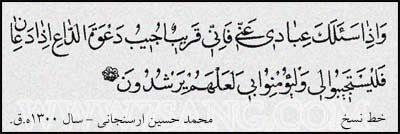 وَاِذٰا سَئَلَكَ عِبٰادی عَنّی فَاِنّی قَریبٌ اُجیبُ دَعْوَةَ الدّٰاعِ اِذٰا دَعٰانِ
فَلْیَسْتَجیبُوا لی وَلْیُؤْمِنُوا بی لَعَلَّهُمْ یَرْشُدُونَ
خط نسخ محمد حسین ارسنجانی - سال ۱۳۰۰ه.ق.